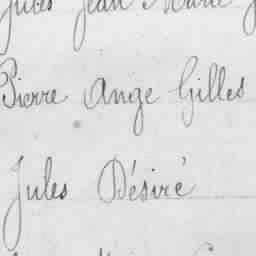 Jules Jean Marie
Pierre Ange Gilles
Jules Désiré